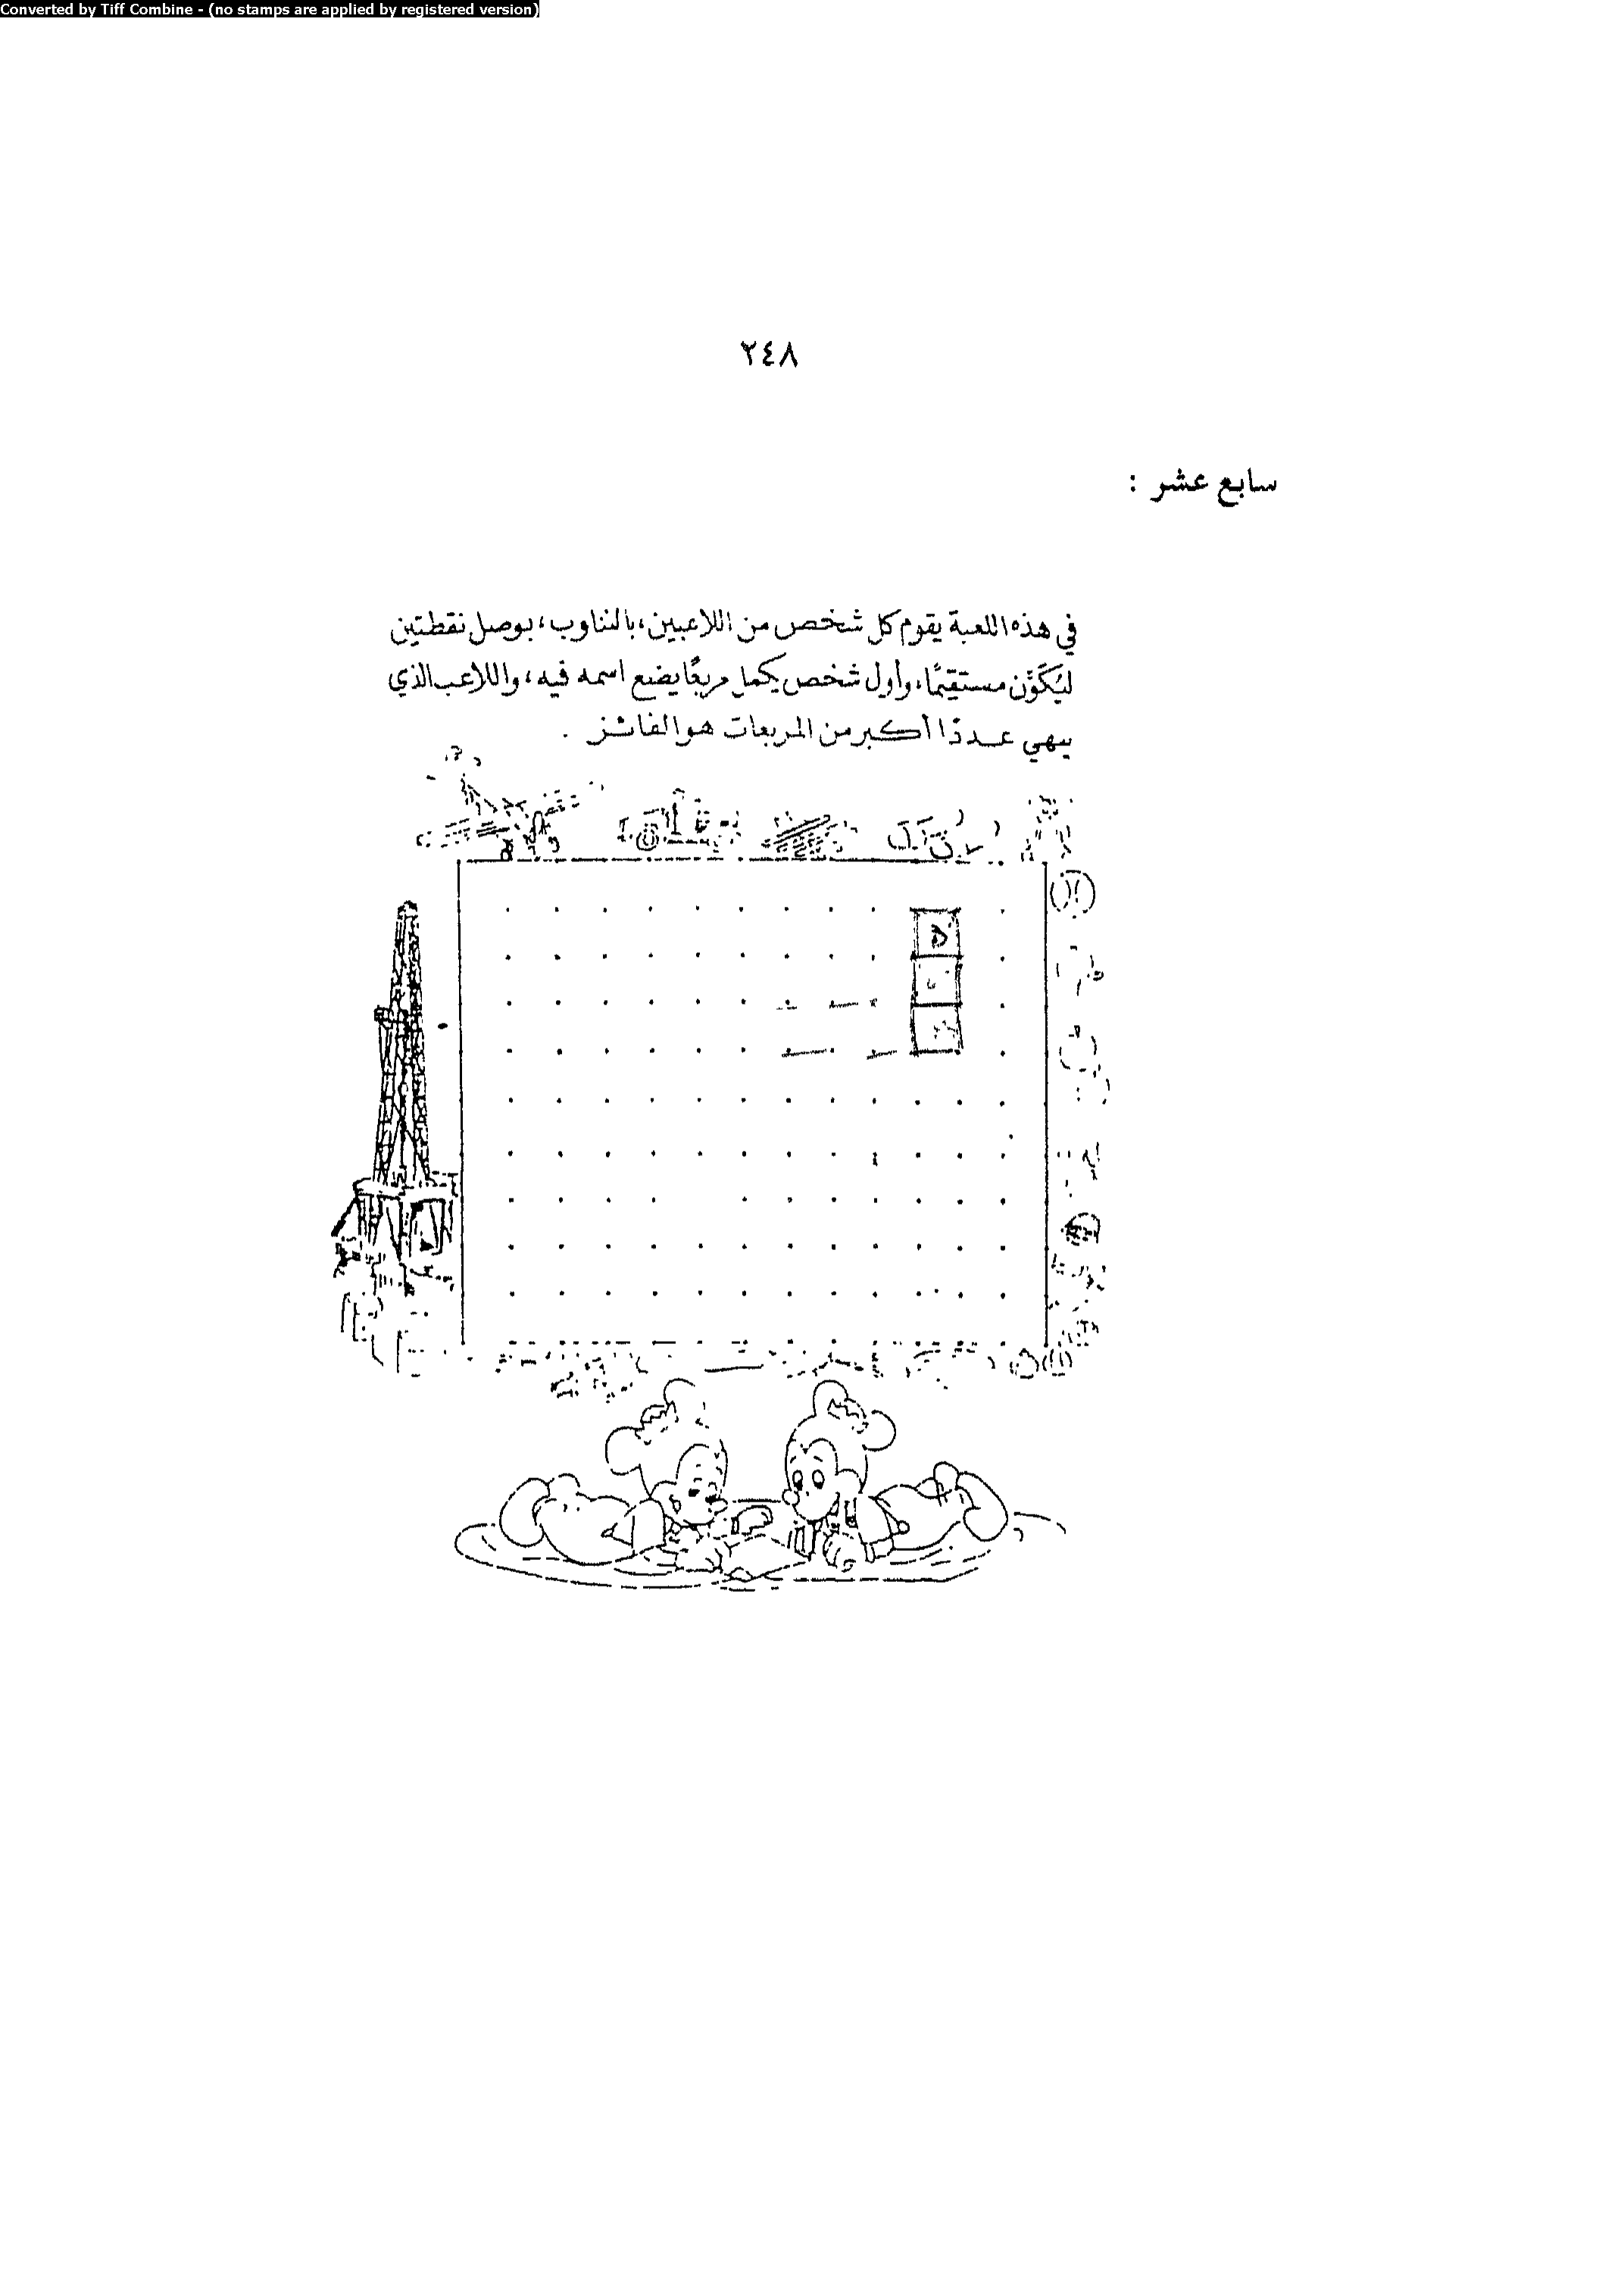 Converted by Tiff Combine - (no stamps are applied by registered version)
٢٤٨
سابع عشر :
في هذه اللعبة يقوم كل شخص من اللاعبين، بالتناوب، بوصل نقطتين
ليُكَوِّن مستقيمًا، وأول شخص يكمل مربعًا يضع اسمه فيه، واللاعب الذي
ينهي عددًا أكبر من المربعات هو الفائز .